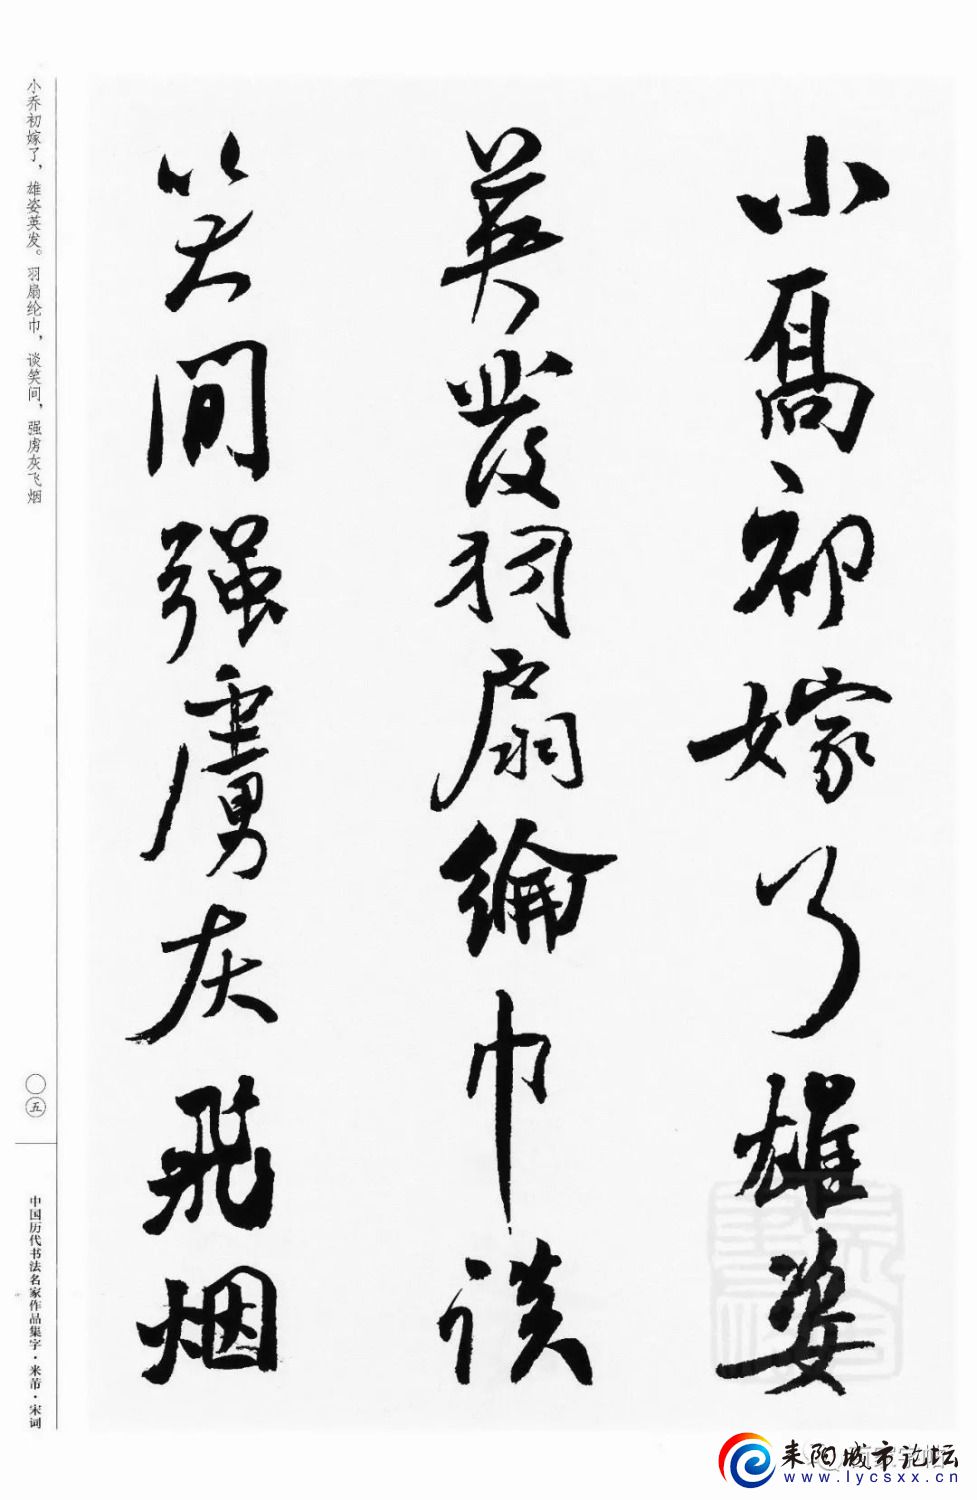 小喬初嫁了雄姿
英發羽扇綸巾談
笑間强虜灰飛烟
小乔初嫁了，雄姿英发。羽扇纶巾，谈笑间，强虏灰飞烟
〇五
中国历代书法名家作品集字·米芾·宋词
耒阳城市论坛
www.lycsxx.cn